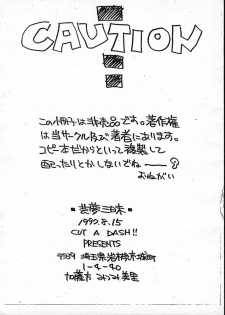 CAUTION
この冊子は非売品です。著作権
は当サークル及び著者にあります。
コピー本だからといって複製して
配ったりとかしないでね——?
おねがい
-芸夢三昧-
1992.8.15
CUT A DASH!!
PRESENTS
〒339 埼玉県岩槻市
1-4-40
加藤方 美里